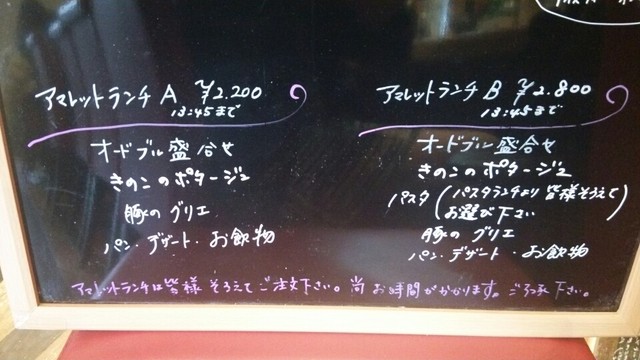 アマレットランチ A ¥2.200
13:45まで
オードブル盛合せ
きのこのポタージュ
豚のグリエ
パン・デザート・お飲物
アマレットランチ B ¥2.800
13:45まで
オードブル盛合せ
きのこのポタージュ
パスタ(パスタランチより皆様そろえて
お選び下さい)
豚のグリエ
パン・デザート・お飲物
アマレットランチは皆様そろえてご注文下さい。尚お時間がかかります。ご了承下さい。